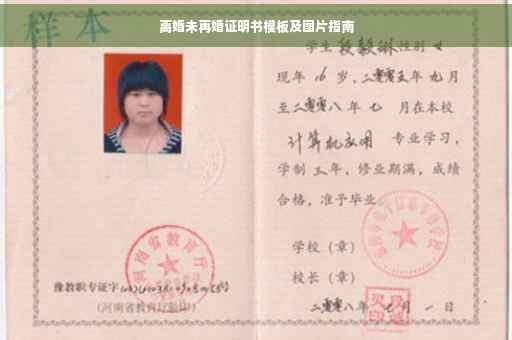 离婚未再婚证明书模板及图片指南
样本
学生段毅琳性别女
现年16岁,二零零五年九月
至二零零八年七月在本校
计算机应用 专业学习,
学制三年,修业期满,成绩
合格,准予毕业。
学校(章)
校长(章)
二零零八年七月一日
河南省教育厅
豫教职专证字
(河南省教育厅验印)